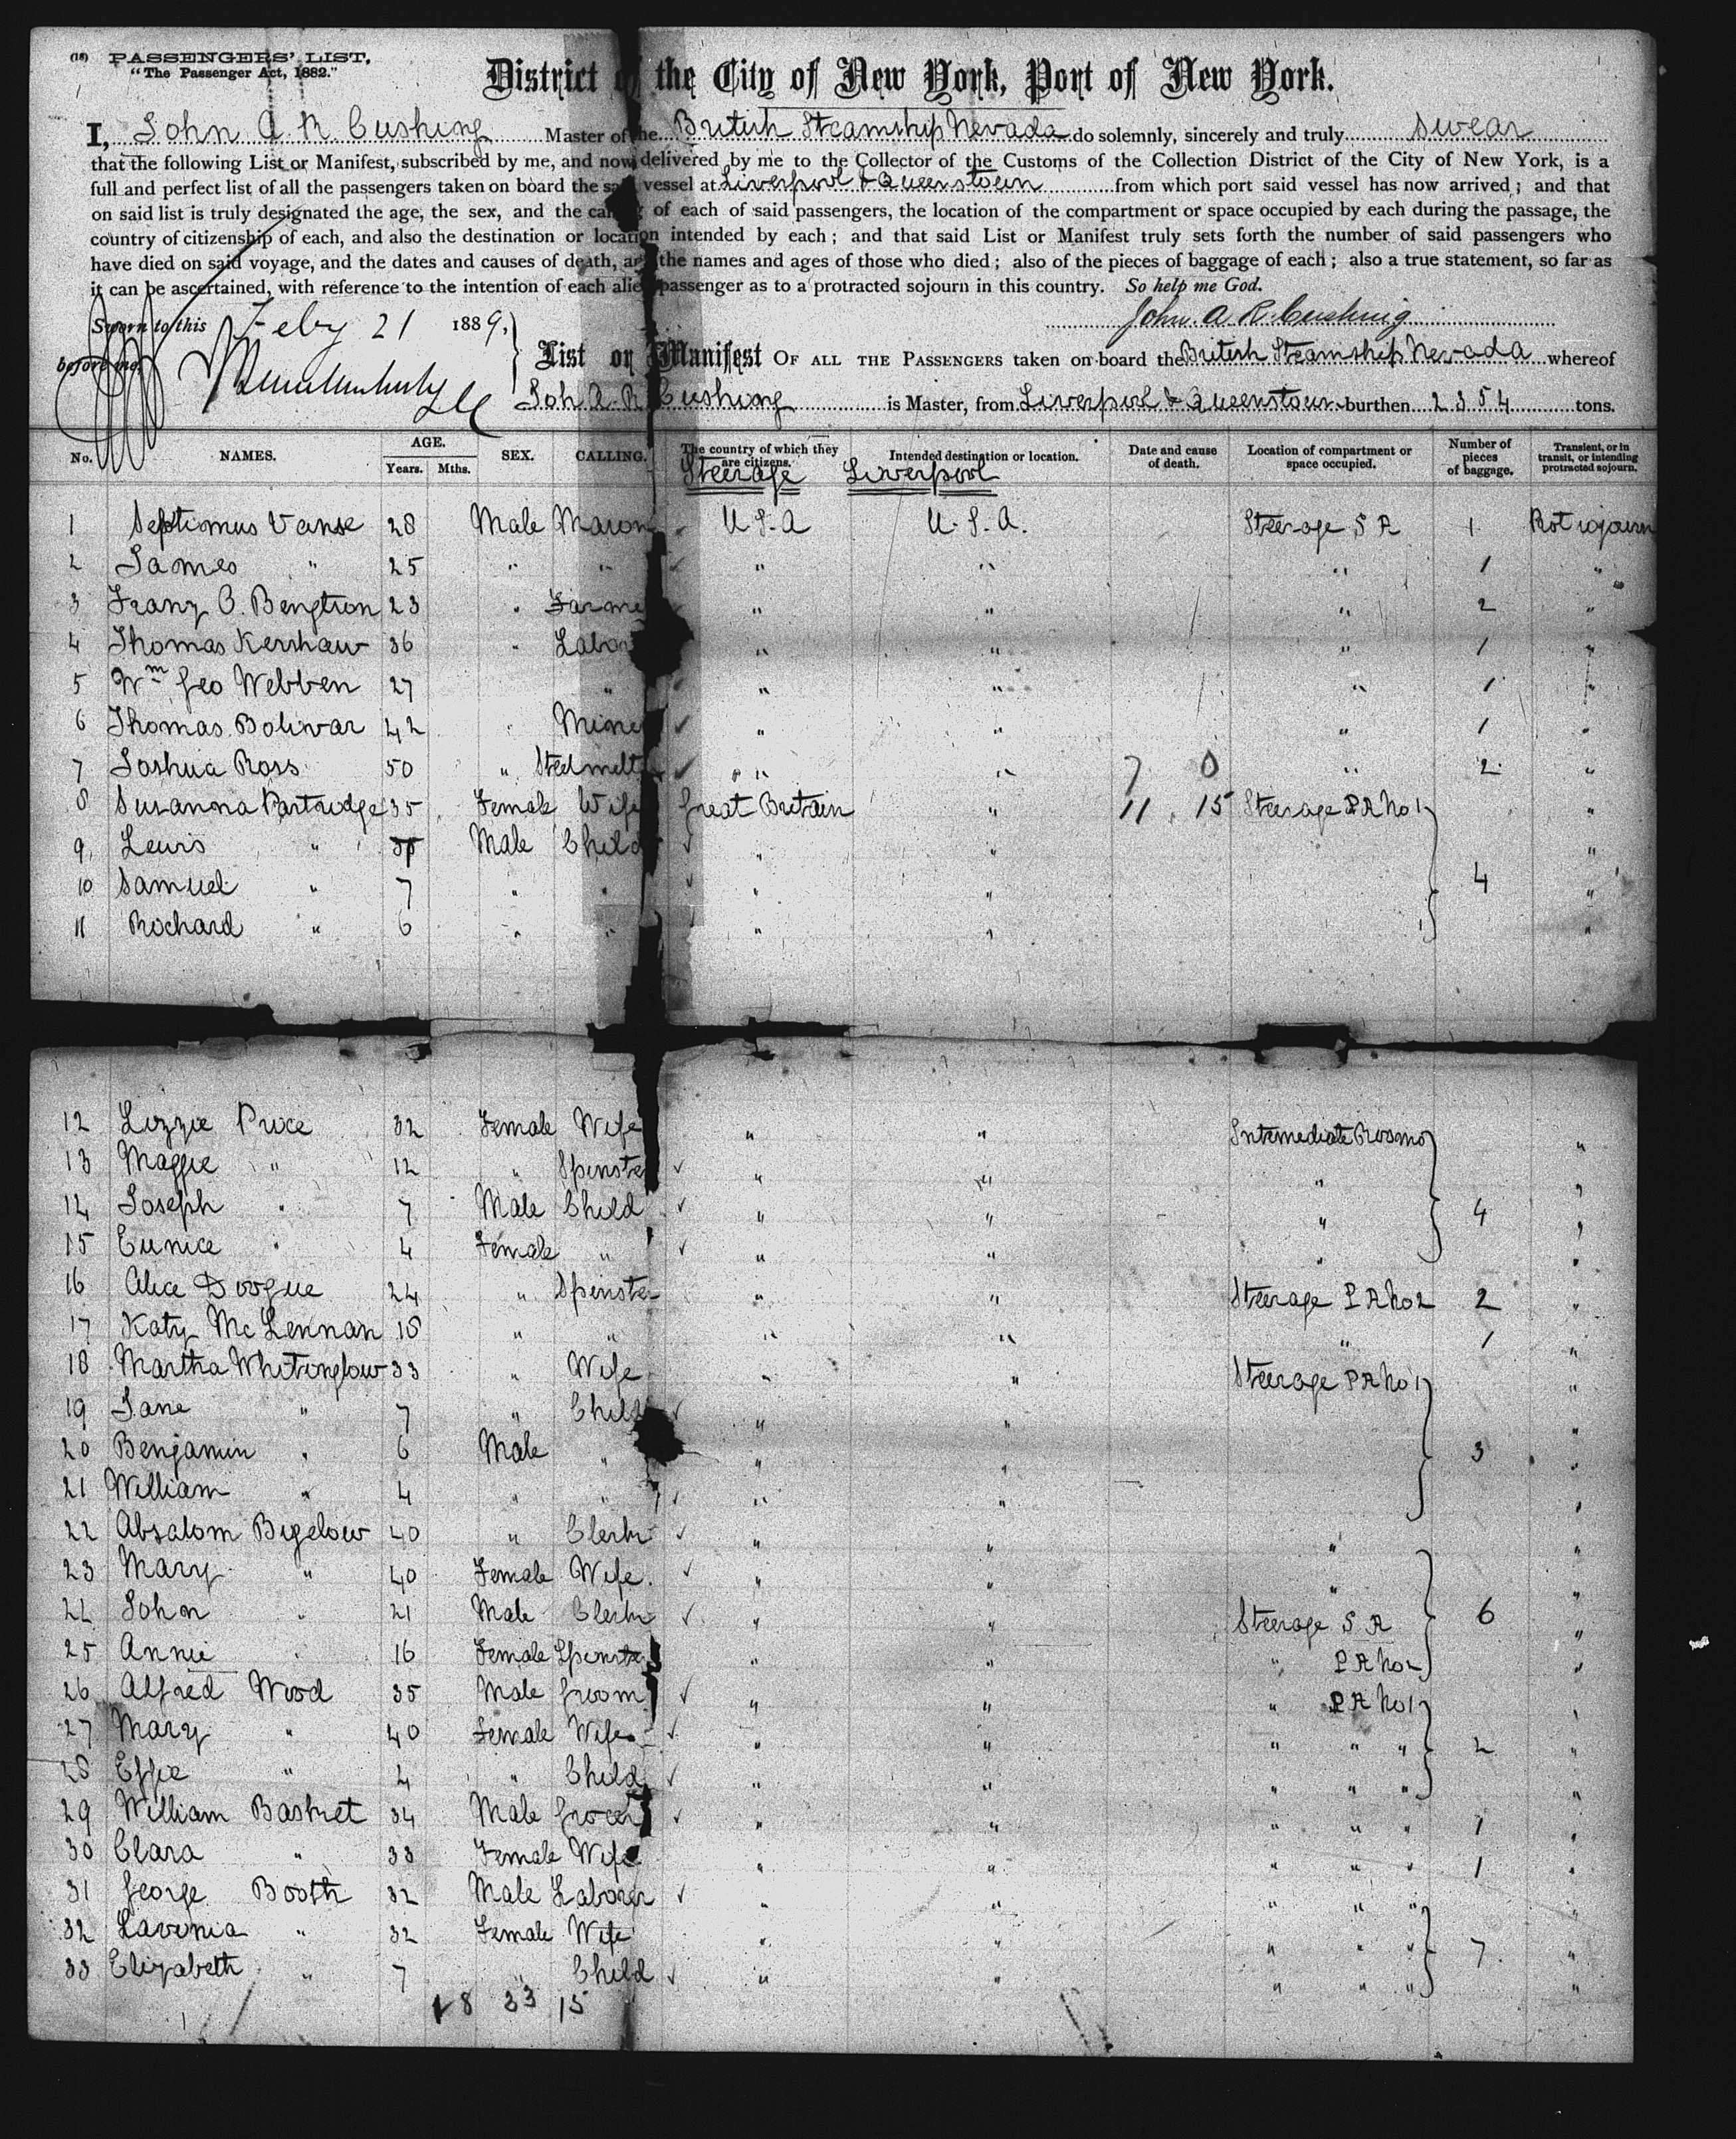 (18) PASSENGERS' LIST.
"The Passenger Act, 1882."
District of the City of New York, Port of New York.
I, John A. R. Cushing Master of the British Steamship Nevada do solemnly, sincerely and truly swear
that the following List or Manifest, subscribed by me, and now delivered by me to the Collector of the Customs of the Collection District of the City of New York, is a
full and perfect list of all the passengers taken on board the said vessel at Liverpool & Queenstown from which port said vessel has now arrived; and that
on said list is truly designated the age, the sex, and the calling of each of said passengers, the location of the compartment or space occupied by each during the passage, the
country of citizenship of each, and also the destination or location intended by each; and that said List or Manifest truly sets forth the number of said passengers who
have died on said voyage, and the dates and causes of death, and the names and ages of those who died; also of the pieces of baggage of each; also a true statement, so far as
it can be ascertained, with reference to the intention of each alien passenger as to a protracted sojourn in this country. So help me God.
Sworn to this Feby 21 1889, John A. R. Cushing
before me
List or Manifest OF ALL THE PASSENGERS taken on board the British Steamship Nevada whereof
Joh A. R Cushing is Master, from Liverpool & Queenstown burthen 2354 tons.
No. NAMES. AGE. Years. Mths. SEX. CALLING. The country of which they are citizens. Intended destination or location. Date and cause of death. Location of compartment or space occupied. Number of pieces of baggage. Transient, or in transit, or intending protracted sojourn.
Steerage Liverpool
1 Septimus Vanse 28 Male Mason U.S.A U.S.A. Steerage S A 1 Prot sojourn
2 James " 25 " " " " " 1 "
3 Franz O. Bengtson 23 " Farme " " " 2 "
4 Thomas Kershaw 36 " Labor " " " 1 "
5 Wm Geo Webben 27 " " " " 1 "
6 Thomas Bolivar 42 " Mine " " " 1 "
7 Joshua Ross 50 " Steelmelt " " 7 0 " 2 "
8 Susanna Partridge 35 Female Wife Great Britain " 11 15 Steerage P A No 1 "
9 Lewis " Male Child " " "
10 Samuel " 7 " " " " 4 "
11 Richard " 6 " " " " "
12 Lizzie Price 32 Female Wife " " Intermediate Rooms "
13 Maggie " 12 " Spinster " " " "
14 Joseph " 7 Male Child " " " 4 "
15 Eunice " 4 Female " " " " "
16 Alice Doogue 24 " Spinster " " Steerage P A No 2 2 "
17 Katy McLennan 15 " " " " " 1 "
18 Martha Whitinglow 33 " Wife " " Steerage P A No 1 "
19 Jane " 7 " Child " " "
20 Benjamin " 6 Male " " " 3 "
21 William " 4 " " " " "
22 Absalom Bigelow 40 " Clerk " " " "
23 Mary " 40 Female Wife " " " "
24 John " 21 Male Clerk " " Steerage S A 6 "
25 Annie " 16 Female Spinster " " " P A No 2 "
26 Alfred Wood 35 Male Groom " " " P A No 1 "
27 Mary " 40 Female Wife " " " " " 2 "
28 Effie " 4 " Child " " " " " "
29 William Basket 34 Male Grocer " " " " " 1 "
30 Clara " 33 Female Wife " " " " " 1 "
31 George Booth 32 Male Laborer " " " " " "
32 Lavinia " 32 Female Wife " " " " " 7 "
33 Elizabeth " 7 " Child " " " " " "
18 33 15